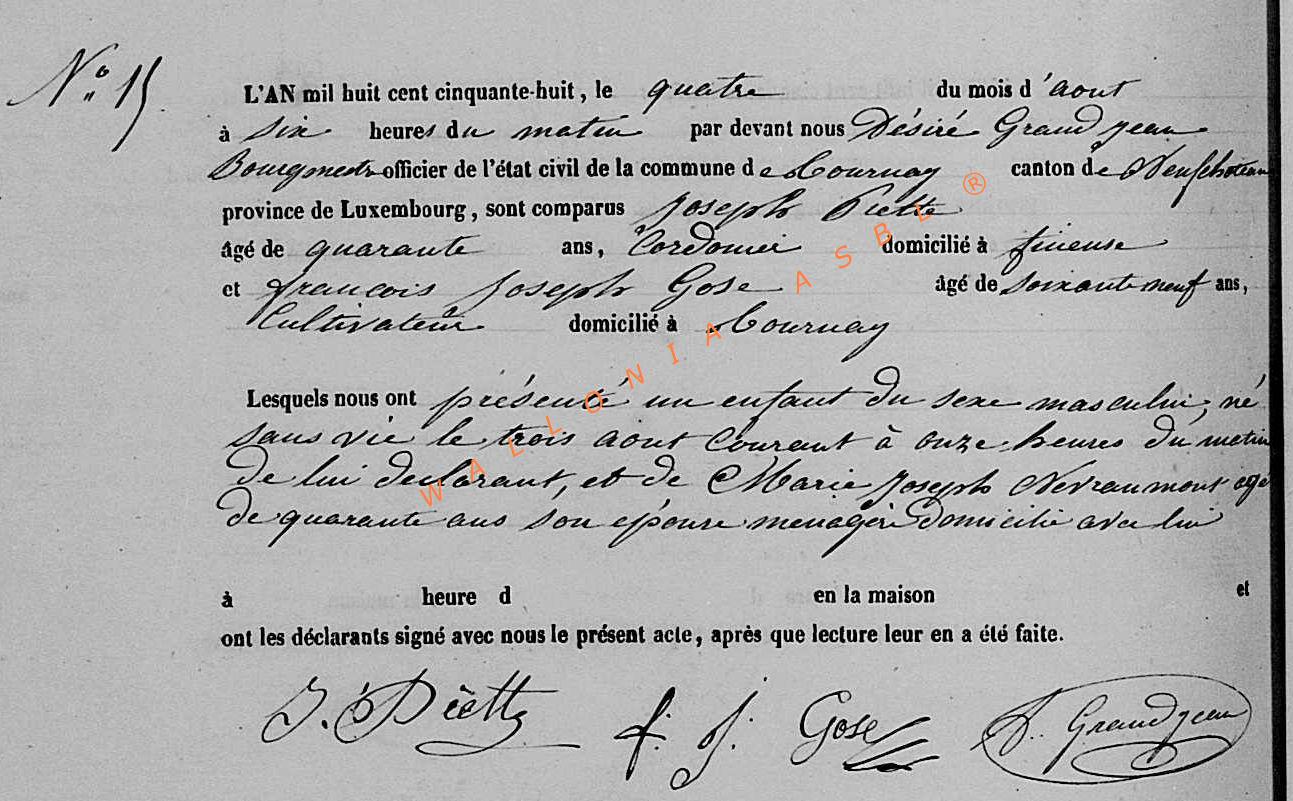 N° 15
L'AN mil huit cent cinquante-huit, le quatre du mois d'aout
à six heures du matin par devant nous Désiré Grandjean
Bourgmestr officier de l'état civil de la commune de Tournay canton de Neufchateau
province de Luxembourg, sont comparus Joseph Piette
âgé de quarante ans, Cordonier domicilié à fineuse
et françois Joseph Gose âgé de soixante neuf ans,
Cultivateur domicilié à Tournay
Lesquels nous ont présenté un enfant du sexe masculin, né
sans vie le trois aout courant à onze heures du matin
de lui declarant, et de Marie Joseph Nevraumont agé
de quarante ans son epouse menagère domicilié avec lui
à heure d en la maison et
ont les déclarants signé avec nous le présent acte, après que lecture leur en a été faite.
J. Piette f. j. Gose D. Grandjean
WALLONIA ASBL ®